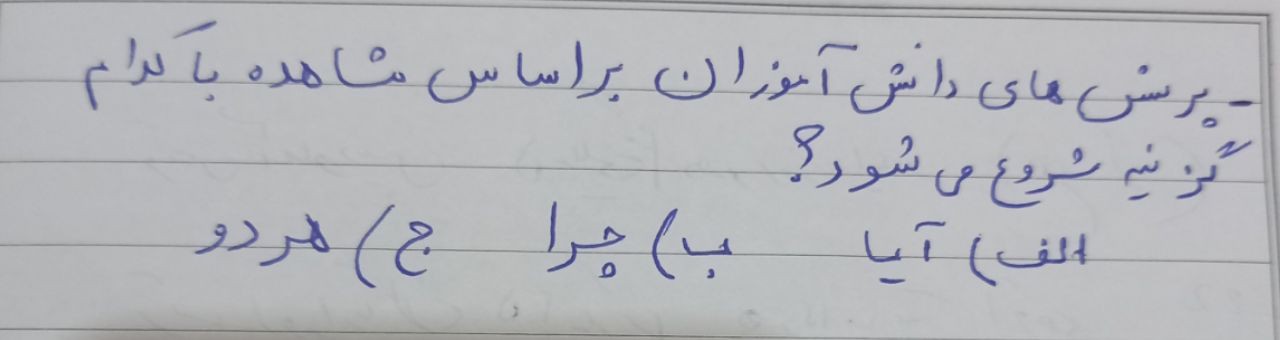 - پرسش های دانش آموزان براساس مشاهده با کدام
گزنیه شروع می شود؟
الف) آیا ب) چرا ج) هر دو